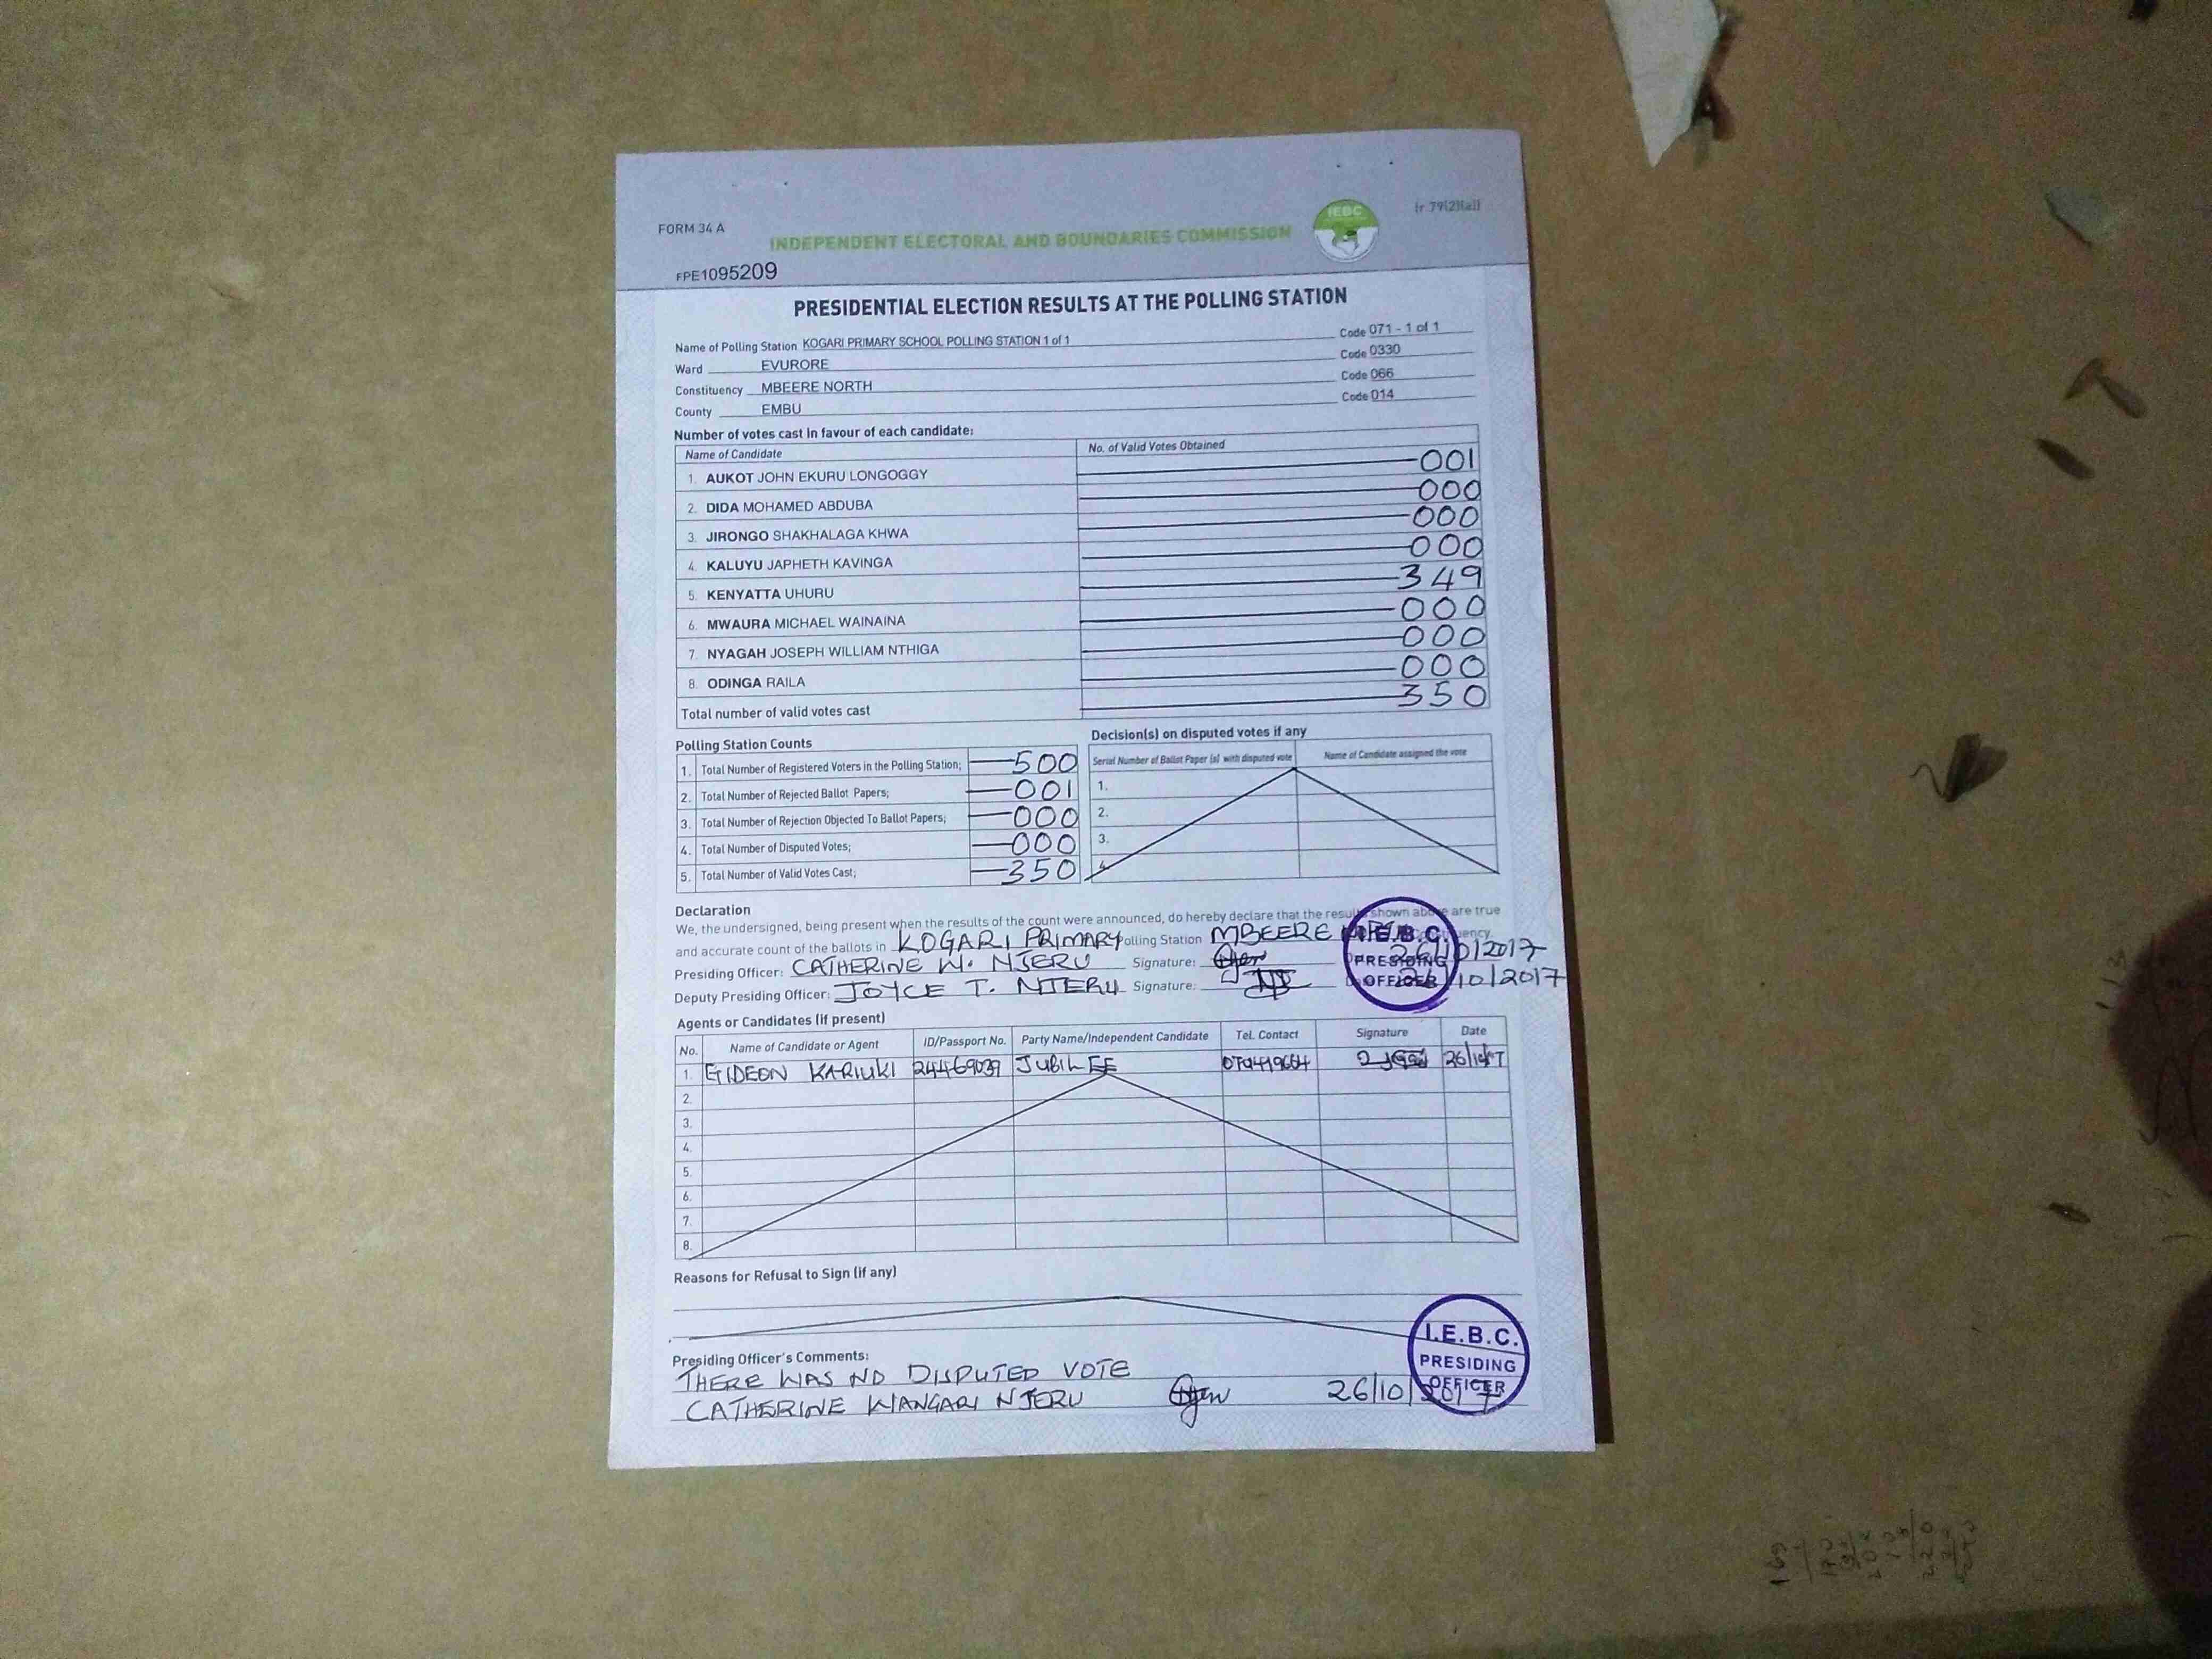 FORM 34 A
INDEPENDENT ELECTORAL AND BOUNDARIES COMMISSION
IEBC
(r 79(2)(a))
FPE1095209
PRESIDENTIAL ELECTION RESULTS AT THE POLLING STATION
Name of Polling Station KOGARI PRIMARY SCHOOL POLLING STATION 1 of 1 Code 071 - 1 of 1
Ward EVURORE Code 0330
Constituency MBEERE NORTH Code 066
County EMBU Code 014
Number of votes cast in favour of each candidate:
Name of Candidate No. of Valid Votes Obtained
1. AUKOT JOHN EKURU LONGOGGY 001
2. DIDA MOHAMED ABDUBA 000
3. JIRONGO SHAKHALAGA KHWA 000
4. KALUYU JAPHETH KAVINGA 000
5. KENYATTA UHURU 349
6. MWAURA MICHAEL WAINAINA 000
7. NYAGAH JOSEPH WILLIAM NTHIGA 000
8. ODINGA RAILA 000
Total number of valid votes cast 350
Polling Station Counts
1. Total Number of Registered Voters in the Polling Station; 500
2. Total Number of Rejected Ballot Papers; 001
3. Total Number of Rejection Objected To Ballot Papers; 000
4. Total Number of Disputed Votes; 000
5. Total Number of Valid Votes Cast; 350
Decision(s) on disputed votes if any
Serial Number of Ballot Paper (s) with disputed vote Name of Candidate assigned the vote
1.
2.
3.
4.
Declaration
We, the undersigned, being present when the results of the count were announced, do hereby declare that the results shown above are true
and accurate count of the ballots in KOGARI PRIMARY Polling Station MBEERE
Presiding Officer: CATHERINE W. NJERU Signature: 26/10/2017
Deputy Presiding Officer: JOYCE T. NJERU Signature: 26/10/2017
I.E.B.C.
PRESIDING
OFFICER
Agents or Candidates (if present)
No. Name of Candidate or Agent ID/Passport No. Party Name/Independent Candidate Tel. Contact Signature Date
1. GIDEON KARIUKI 24469039 JUBILEE
2.
3.
4.
5.
6.
7.
8.
Reasons for Refusal to Sign (if any)
Presiding Officer's Comments:
THERE WAS NO DISPUTED VOTE
CATHERINE WANGARI NJERU 26/10/2017
I.E.B.C.
PRESIDING
OFFICER